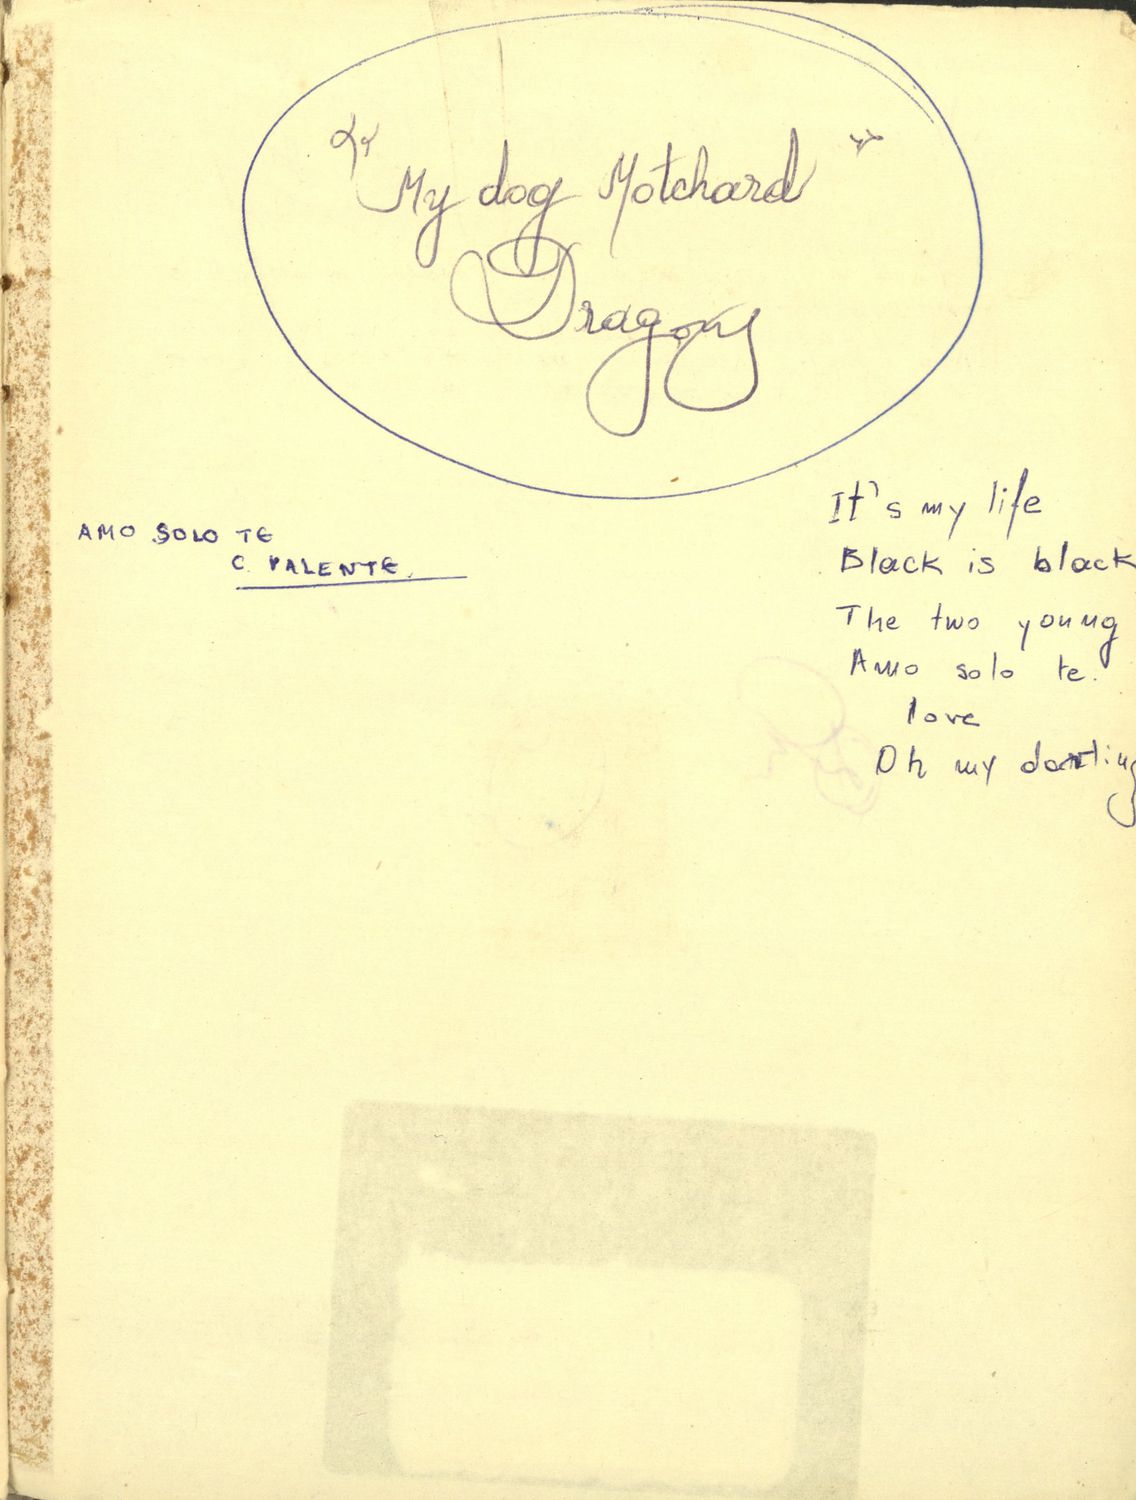 "My dog Motchard"
Dragons
AMO SOLO TE
C. VALENTE.
It's my life
Black is black
The two young
Amo solo te.
love
Oh my darling